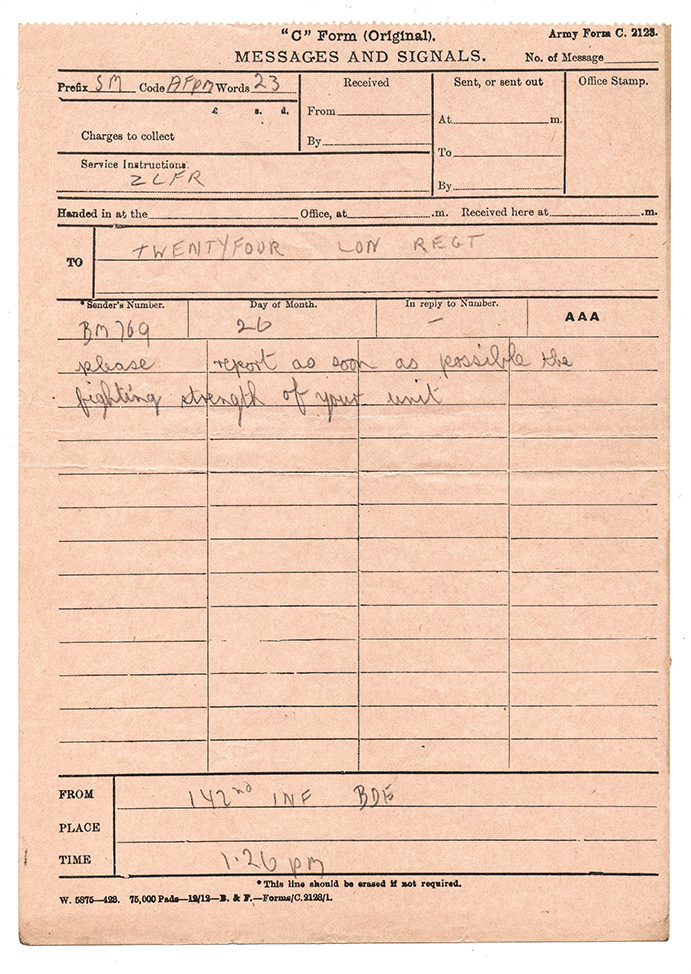 "C" Form (Original). Army Form C. 2123.
MESSAGES AND SIGNALS. No. of Message
Prefix SM Code Words 23
£ s. d.
Charges to collect
Received
From
By
Sent, or sent out
At m.
To
By
Office Stamp.
Service Instructions.
ZLFR
Handed in at the Office, at .m. Received here at .m.
TO TWENTYFOUR LON REGT
*Sender's Number. Day of Month. In reply to Number. AAA
BM769 26 —
please report as soon as possible the
fighting strength of your unit
FROM 142nd INF BDE
PLACE
TIME 1.26 pm
*This line should be erased if not required.
W. 5875—423. 75,000 Pads—12/12—B. & F.—Forms/C.2123/1.